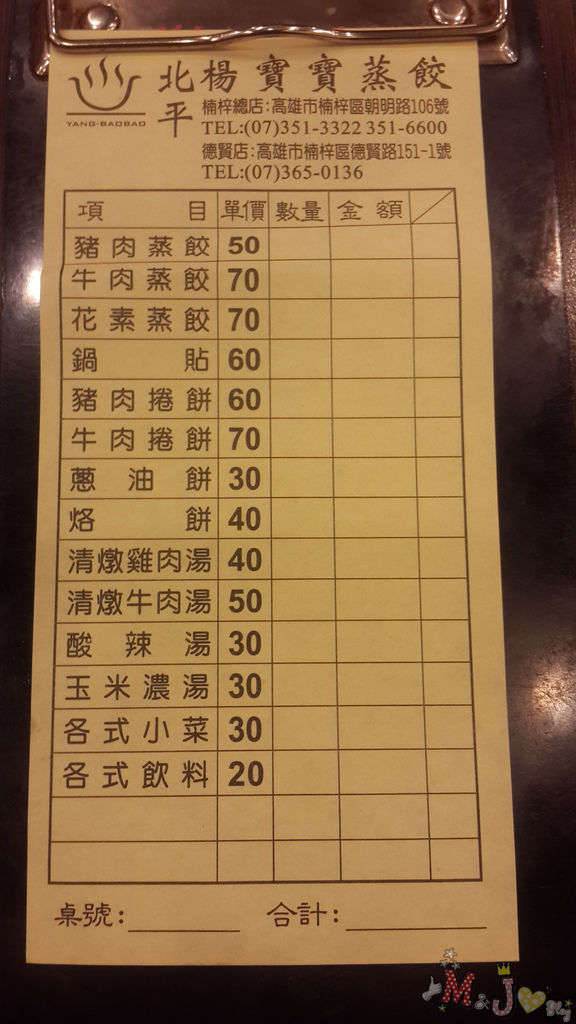 北平 楊寶寶蒸餃
YANG-BAOBAO
楠梓總店:高雄市楠梓區朝明路106號
TEL:(07)351-3322 351-6600
德賢店:高雄市楠梓區德賢路151-1號
TEL:(07)365-0136
項目 單價 數量 金額
豬肉蒸餃 50
牛肉蒸餃 70
花素蒸餃 70
鍋貼 60
豬肉捲餅 60
牛肉捲餅 70
蔥油餅 30
烙餅 40
清燉雞肉湯 40
清燉牛肉湯 50
酸辣湯 30
玉米濃湯 30
各式小菜 30
各式飲料 20
桌號: 合計:
M & J Blog